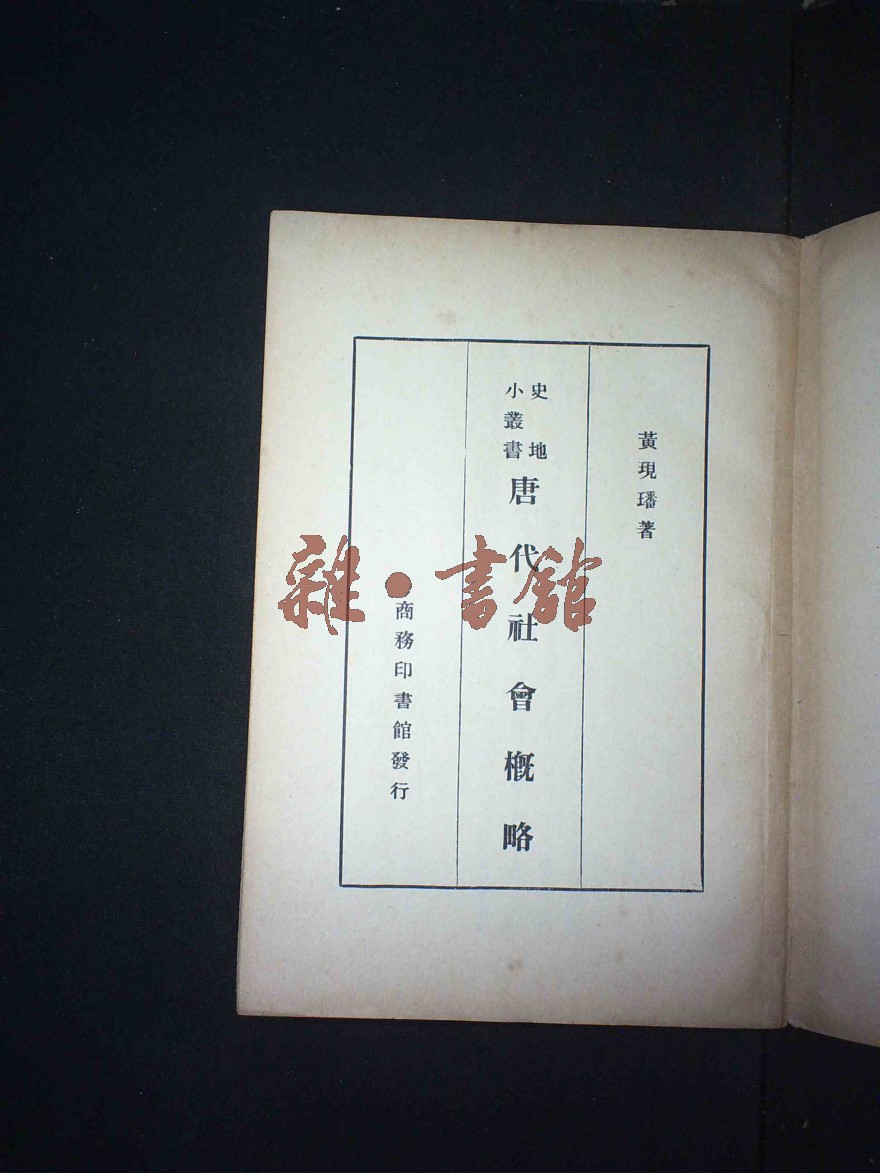 黃現璠著
史地
小叢書
唐代社會概略
商務印書館發行
雜·書館